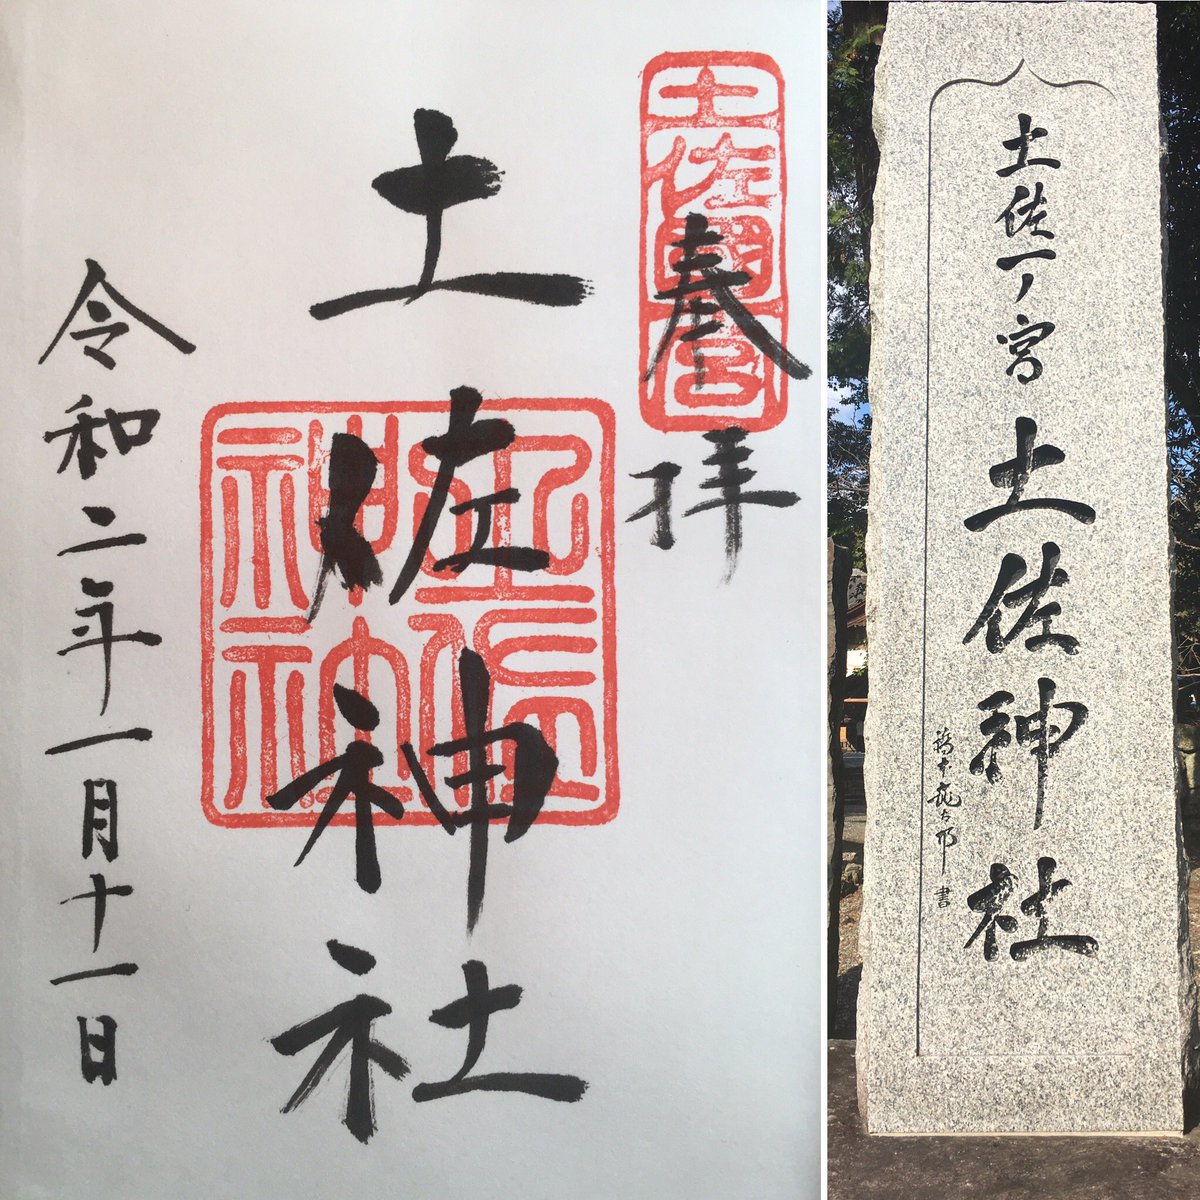 土佐國一宮
奉拝
土佐神社
令和二年一月十一日
土佐一ノ宮 土佐神社
橋本龍太郎 書